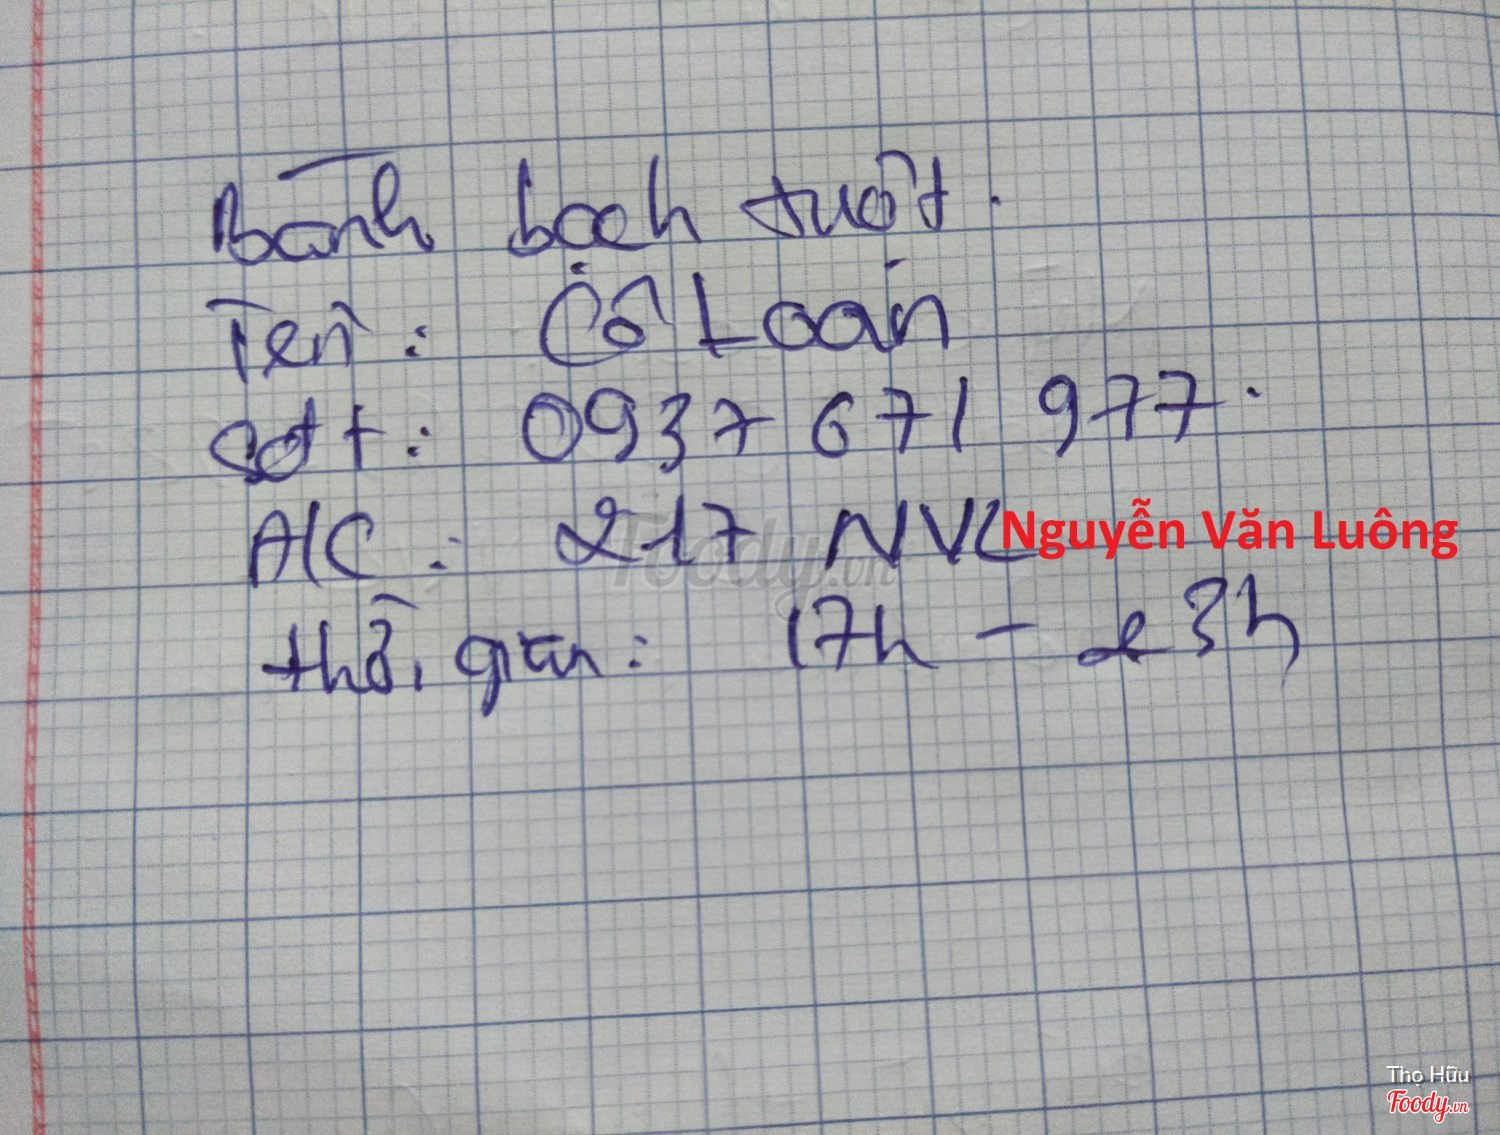 Bành bạch tuột.
Tên: Cô Loan
Sđt: 0937 671 977.
Đ/C: 217 NVL Nguyễn Văn Luông
thời gian: 17h - 23h
Foody.vn
Thọ Hữu
Foody.vn